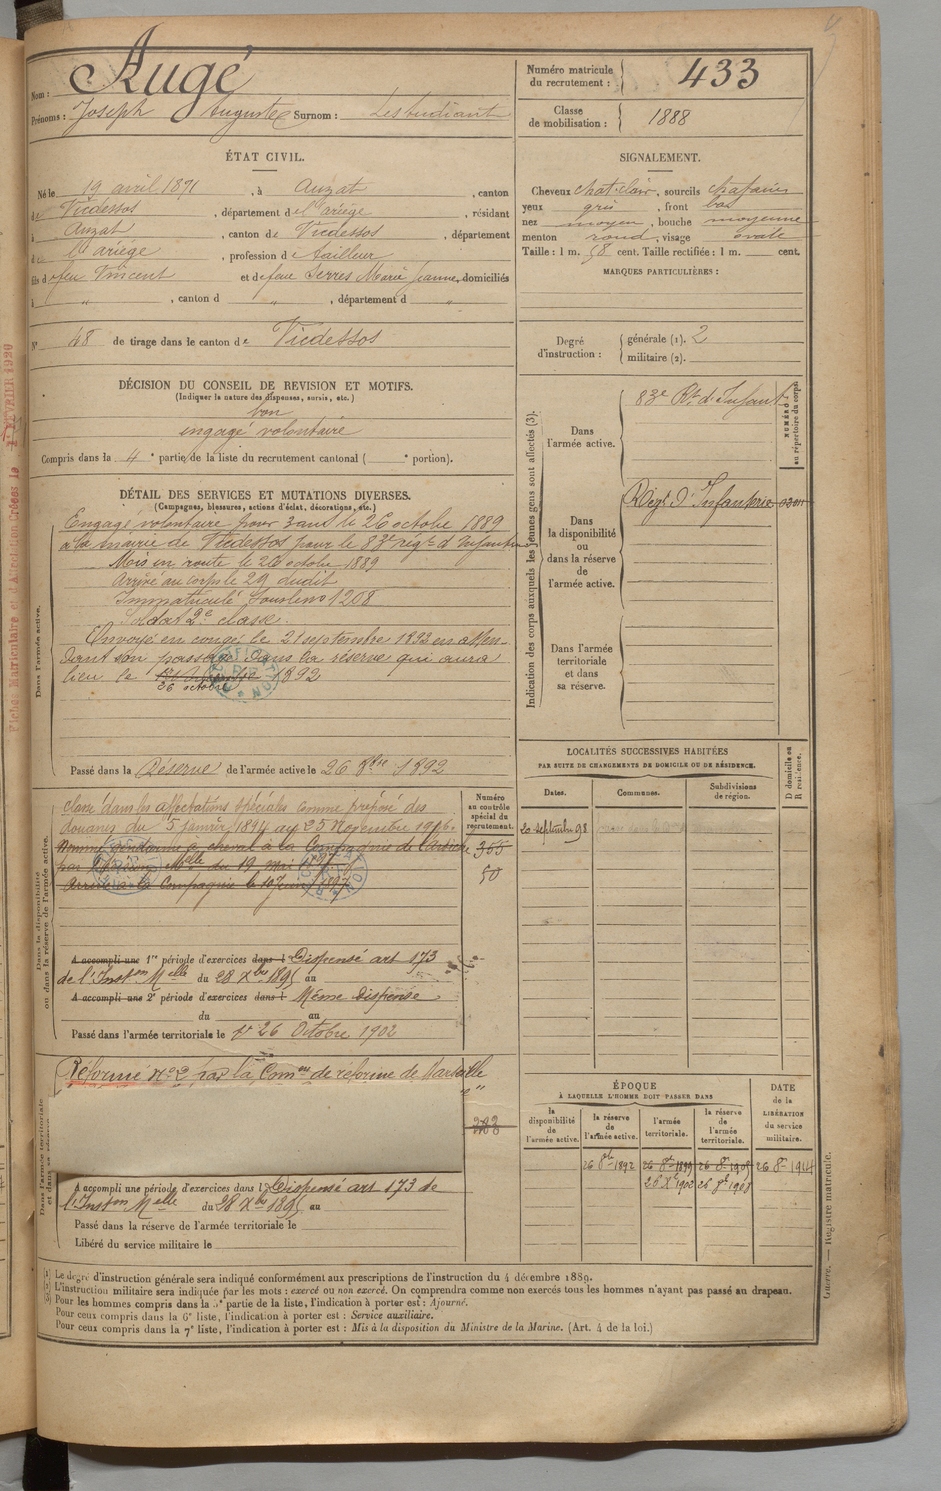 Nom : Augé
Prénoms : Joseph Auguste Surnom :
Numéro matricule du recrutement : 433
Classe de mobilisation : 1888
ÉTAT CIVIL.
Né le 19 avril 1871, à Auzat, canton
de Vicdessos, département de l'ariége, résidant
à Auzat, canton de Vicdessos, département
de l'ariége, profession de tailleur
fils de feu Vincent et de feue Serres Marie Jeanne, domiciliés
à " , canton d " , département d "
N° 48 de tirage dans le canton de Vicdessos
SIGNALEMENT.
Cheveux chat. clair, sourcils chatains
yeux gris, front bas
nez moyen, bouche moyenne
menton rond, visage ovale
Taille : 1 m. 58 cent. Taille rectifiée : 1 m. cent.
MARQUES PARTICULIÈRES :
Degré d'instruction : générale (1). 2
militaire (2).
DÉCISION DU CONSEIL DE REVISION ET MOTIFS.
(Indiquer la nature des dispenses, sursis, etc.)
bon
engagé volontaire
Compris dans la 4e partie de la liste du recrutement cantonal ( e portion).
DÉTAIL DES SERVICES ET MUTATIONS DIVERSES.
(Campagnes, blessures, actions d'éclat, décorations, etc.)
Dans l'armée active.
Engagé volontaire pour 3 ans le 26 octobre 1889
à la mairie de Vicdessos pour le 83e régt d'Infanterie
Mis en route le 26 octobre 1889
Arrivé au corps le 29 dudit
Immatriculé sous le no 1208
Soldat 2e classe.
Envoyé en congé le 21 septembre 1892 en atten-
dant son passage dans la réserve qui aura
lieu le 1892
26 octobre
Passé dans la Réserve de l'armée active le 26 8bre 1892
Indication des corps auxquels les jeunes gens sont affectés (3).
NUMÉRO au répertoire du corps
Dans l'armée active.
83e Rt d'Infant
Dans la disponibilité ou dans la réserve de l'armée active.
Régt d'Infanterie
Dans l'armée territoriale et dans sa réserve.
LOCALITÉS SUCCESSIVES HABITÉES
PAR SUITE DE CHANGEMENTS DE DOMICILE OU DE RÉSIDENCE.
Dates. Communes. Subdivisions de région. D domicile ou R résidence.
20 septembre 98
Dans la disponibilité ou dans la réserve de l'armée active.
Numéro au contrôle spécial du recrutement.
Classé dans les affectations spéciales comme préposé des
douanes du 5 janvier 1894 au 25 Novembre 1916.
Nommé gendarme à cheval à la Compagnie de l'Ardèche
par Melle du 19 Mai 1897
Arrivé à la Compagnie le 10 Juin 1897
365
50
A accompli une 1re période d'exercices dans l Dispensé art 173
de l'Inston Melle du 28 Xbre 1895 au
A accompli une 2e période d'exercices dans l Même dispense
du au
Passé dans l'armée territoriale le 26 Octobre 1902
Dans l'armée territoriale et dans sa réserve
Réformé No 2 par la Comon de réforme de Marseille
A accompli une période d'exercices dans l Dispensé art 173 de
l'Inston Melle du 28 Xbre 1895 au
Passé dans la réserve de l'armée territoriale le
Libéré du service militaire le
ÉPOQUE
À LAQUELLE L'HOMME DOIT PASSER DANS
la disponibilité de l'armée active.
la réserve de l'armée active.
l'armée territoriale.
la réserve de l'armée territoriale.
DATE de la LIBÉRATION du service militaire.
26 8bre 1892 26 8bre 1899 26 8bre 1908 26 8bre 1914
1902 26 8bre 1908
(1) Le degré d'instruction générale sera indiqué conformément aux prescriptions de l'instruction du 4 décembre 1889.
(2) L'instruction militaire sera indiquée par les mots : exercé ou non exercé. On comprendra comme non exercés tous les hommes n'ayant pas passé au drapeau.
(3) Pour les hommes compris dans la 5e partie de la liste, l'indication à porter est : Ajourné.
Pour ceux compris dans la 6e liste, l'indication à porter est : Service auxiliaire.
Pour ceux compris dans la 7e liste, l'indication à porter est : Mis à la disposition du Ministre de la Marine. (Art. 4 de la loi.)
Guerre. — Registre matricule.